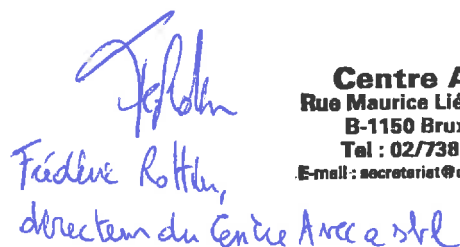 Centre A
Rue Maurice Lié
B-1150 Brux
Tel : 02/738
E-mail : secretariat@
Frédéric Rottier,
directeur du Centre Avec asbl